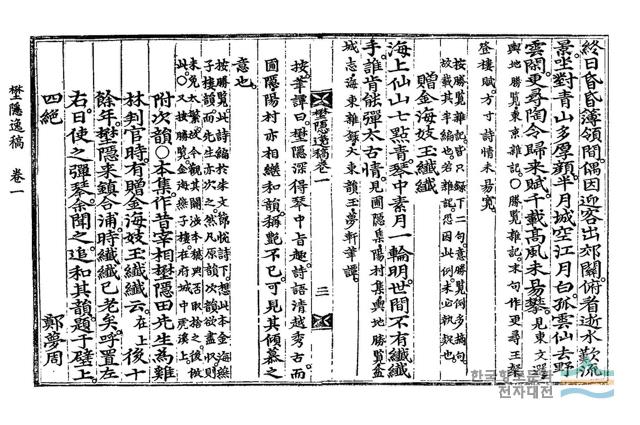 終日昏昏簿領間偶因迎客出郊關俯看逝水歎流
景坐對青山多厚顔半月城空江月白孤雲仙去野
雲閑更尋陶令歸來賦千載高風未易攀見東文選
輿地勝覽東京雜記○勝覽雜記末句作更尋王粲
登樓賦方寸詩情未易寬
按勝覽雜記皆只録下二句意勝覽例多摘句
贈金海妓玉纖纖
海上仙山七點靑琴中素月一輪明世間不有纖纖
手誰肯能彈太古情見圃隱集陽村集輿地勝覽盆
城志海東雜録大東韻玉夢軒筆譚
按筆譚曰埜隱深得琴中旨趣詩語清越秀古而
圃隱陽村亦相繼和韻稱艶不已可見其傾慕之
意也
附次韻○本集作昔宰相埜隱田先生爲雞
林判官時有贈金海妓玉纖纖云在上後十
餘年埜隱來鎭合浦時纖纖已老矣呼置左
右日使之彈琴余聞之追和其韻題于壁上
四絶
鄭夢周
埜隱逸稿卷一
三
埜隱逸稿 卷一
한국향토문화
전자대전